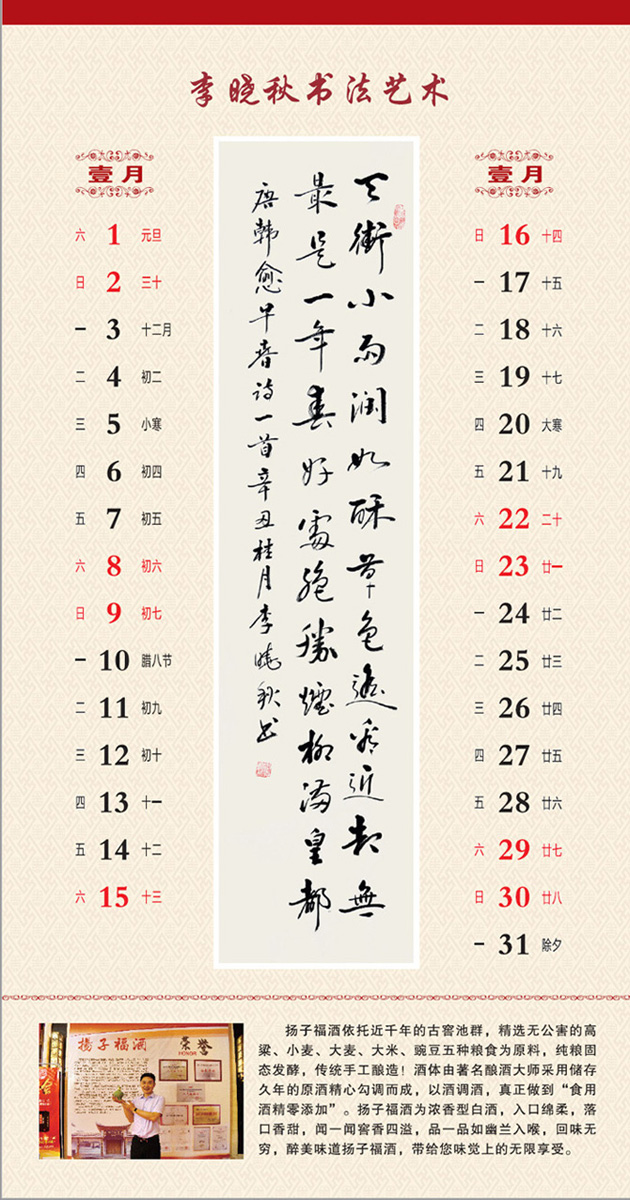 李晓秋书法艺术
壹月
六 1 元旦
日 2 三十
一 3 十二月
二 4 初二
三 5 小寒
四 6 初四
五 7 初五
六 8 初六
日 9 初七
一 10 腊八节
二 11 初九
三 12 初十
四 13 十一
五 14 十二
六 15 十三
天街小雨润如酥草色遥看近却無
最是一年春好處絶勝煙柳满皇都
唐韩愈早春诗一首辛丑桂月李晓秋书
壹月
日 16 十四
一 17 十五
二 18 十六
三 19 十七
四 20 大寒
五 21 十九
六 22 二十
日 23 廿一
一 24 廿二
二 25 廿三
三 26 廿四
四 27 廿五
五 28 廿六
六 29 廿七
日 30 廿八
一 31 除夕
扬子福酒 荣誉
HONOR
扬子福酒依托近千年的古窖池群，精选无公害的高
粱、小麦、大麦、大米、豌豆五种粮食为原料，纯粮固
态发酵，传统手工酿造！酒体由著名酿酒大师采用储存
久年的原酒精心勾调而成，以酒调酒，真正做到“食用
酒精零添加”。扬子福酒为浓香型白酒，入口绵柔，落
口香甜，闻一闻窖香四溢，品一品如幽兰入喉，回味无
穷，醉美味道扬子福酒，带给您味觉上的无限享受。